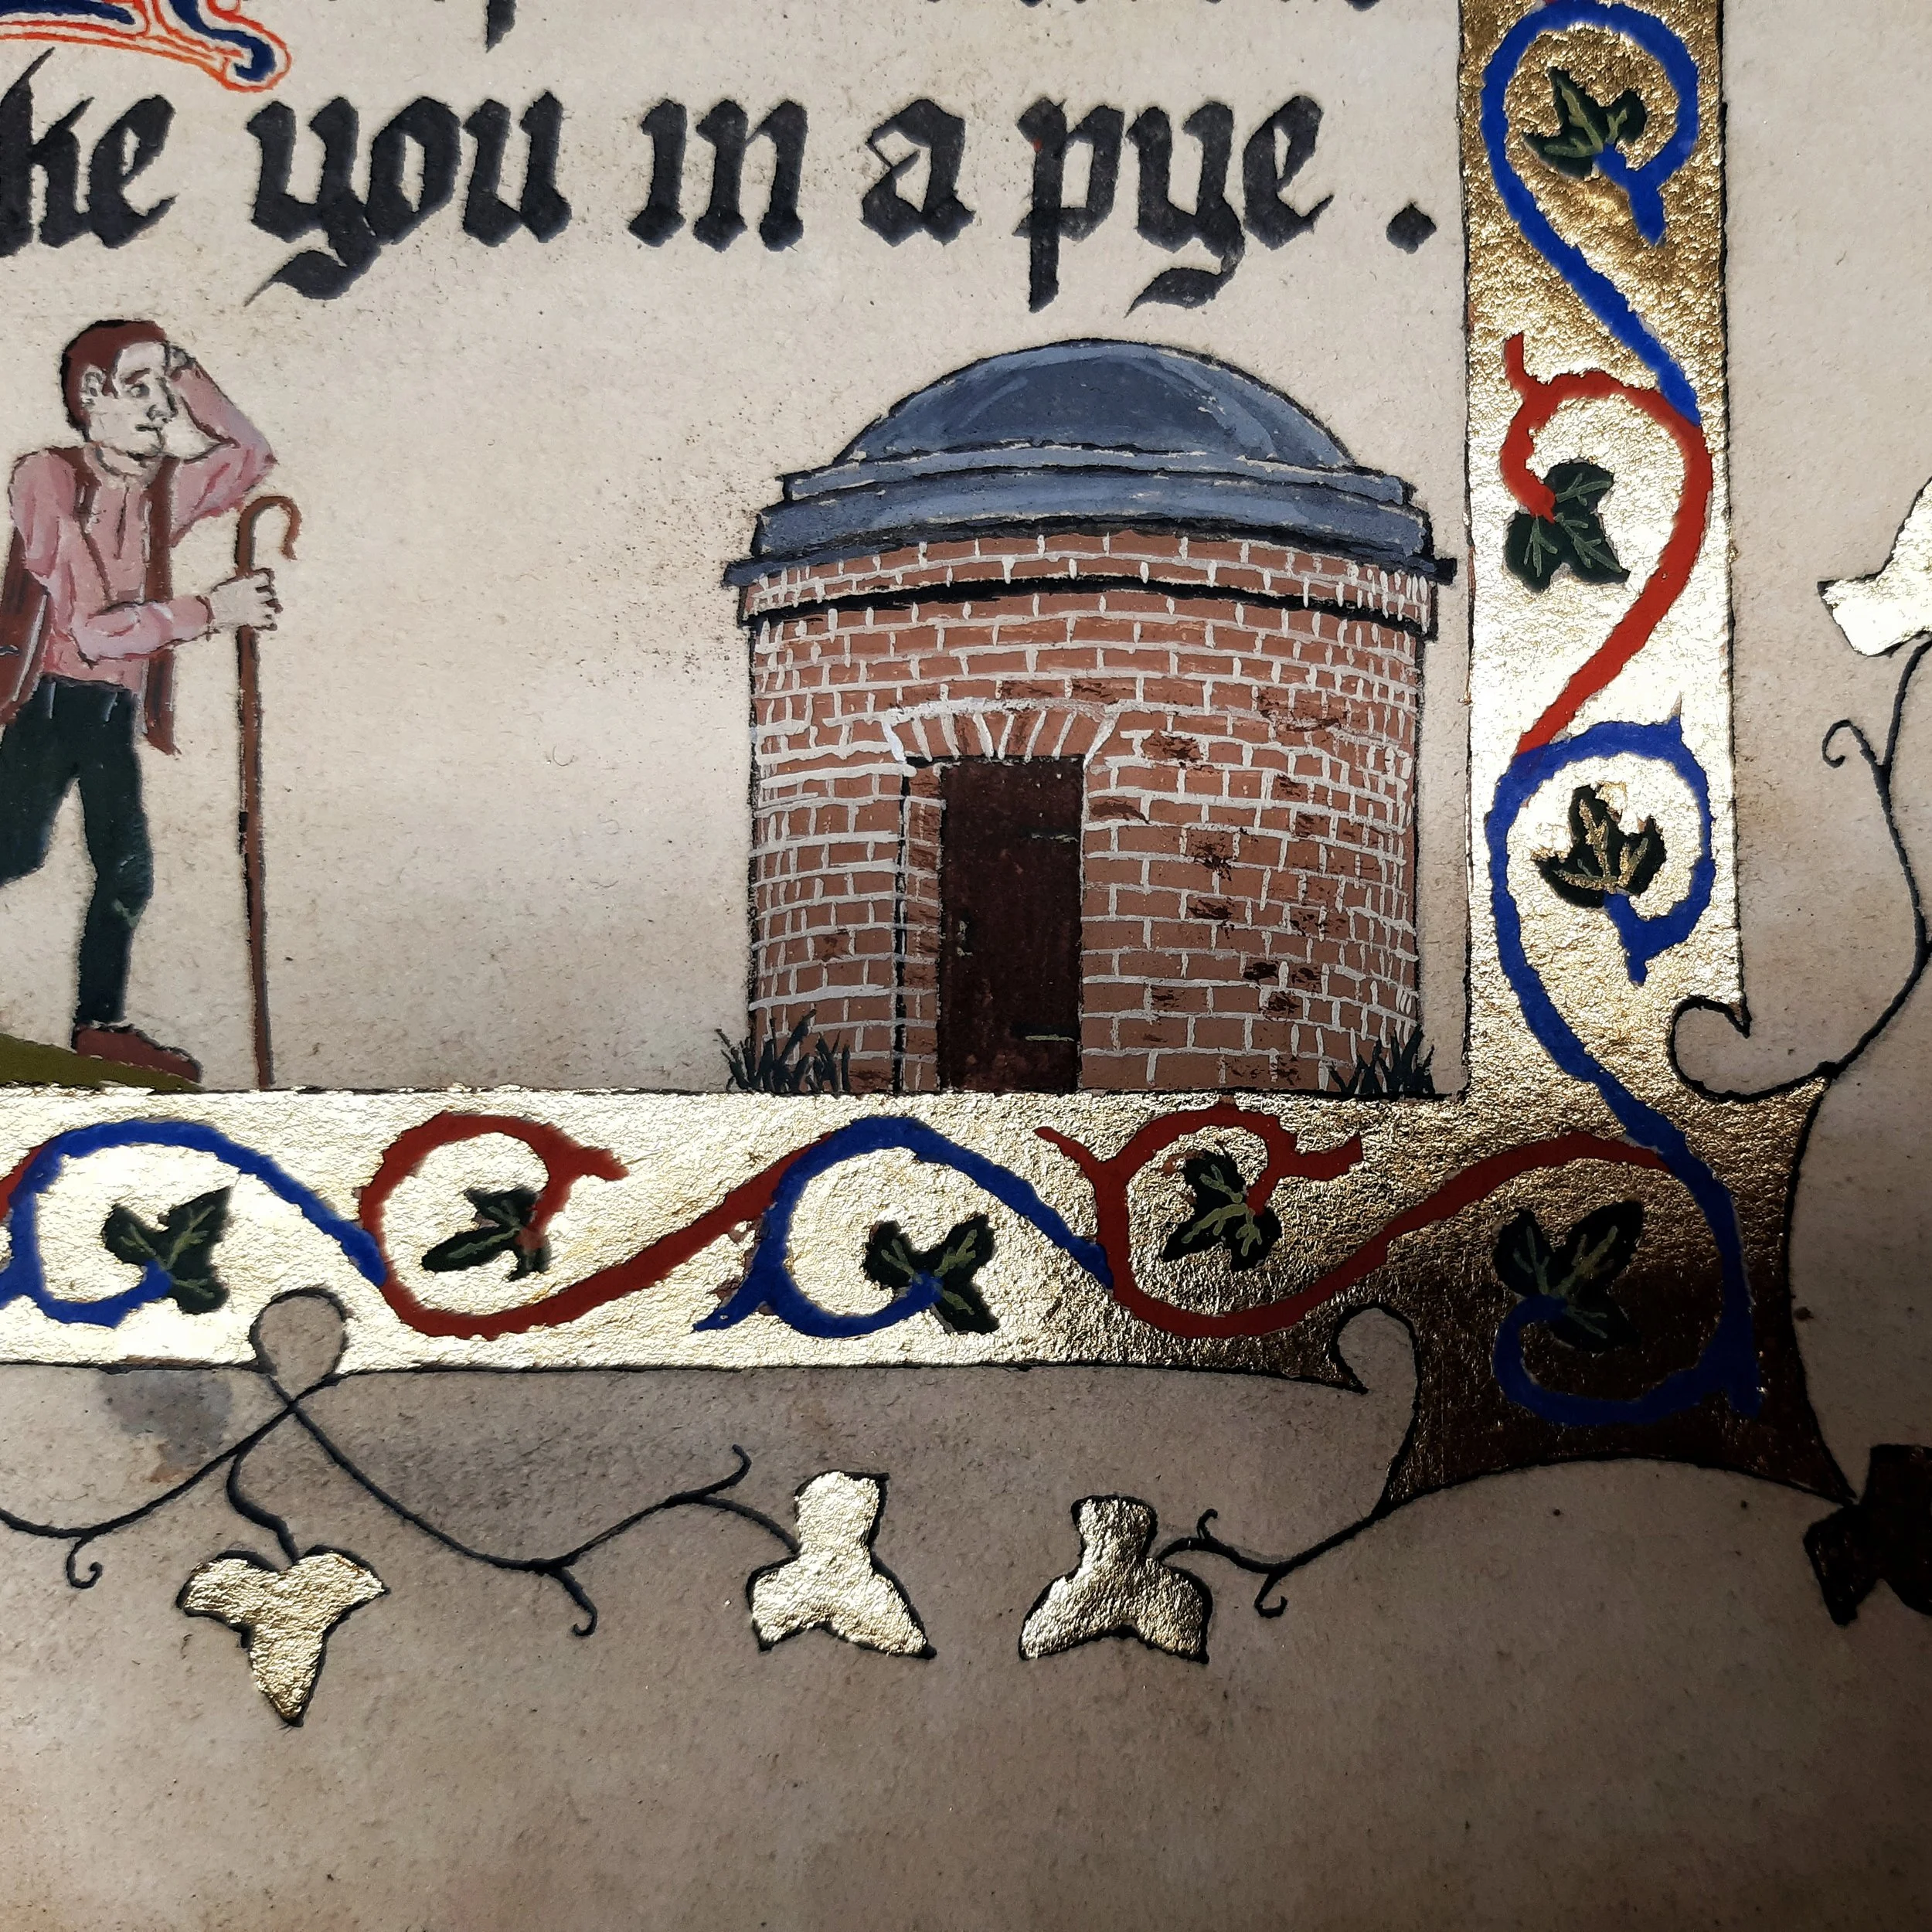 ke you in a pye.